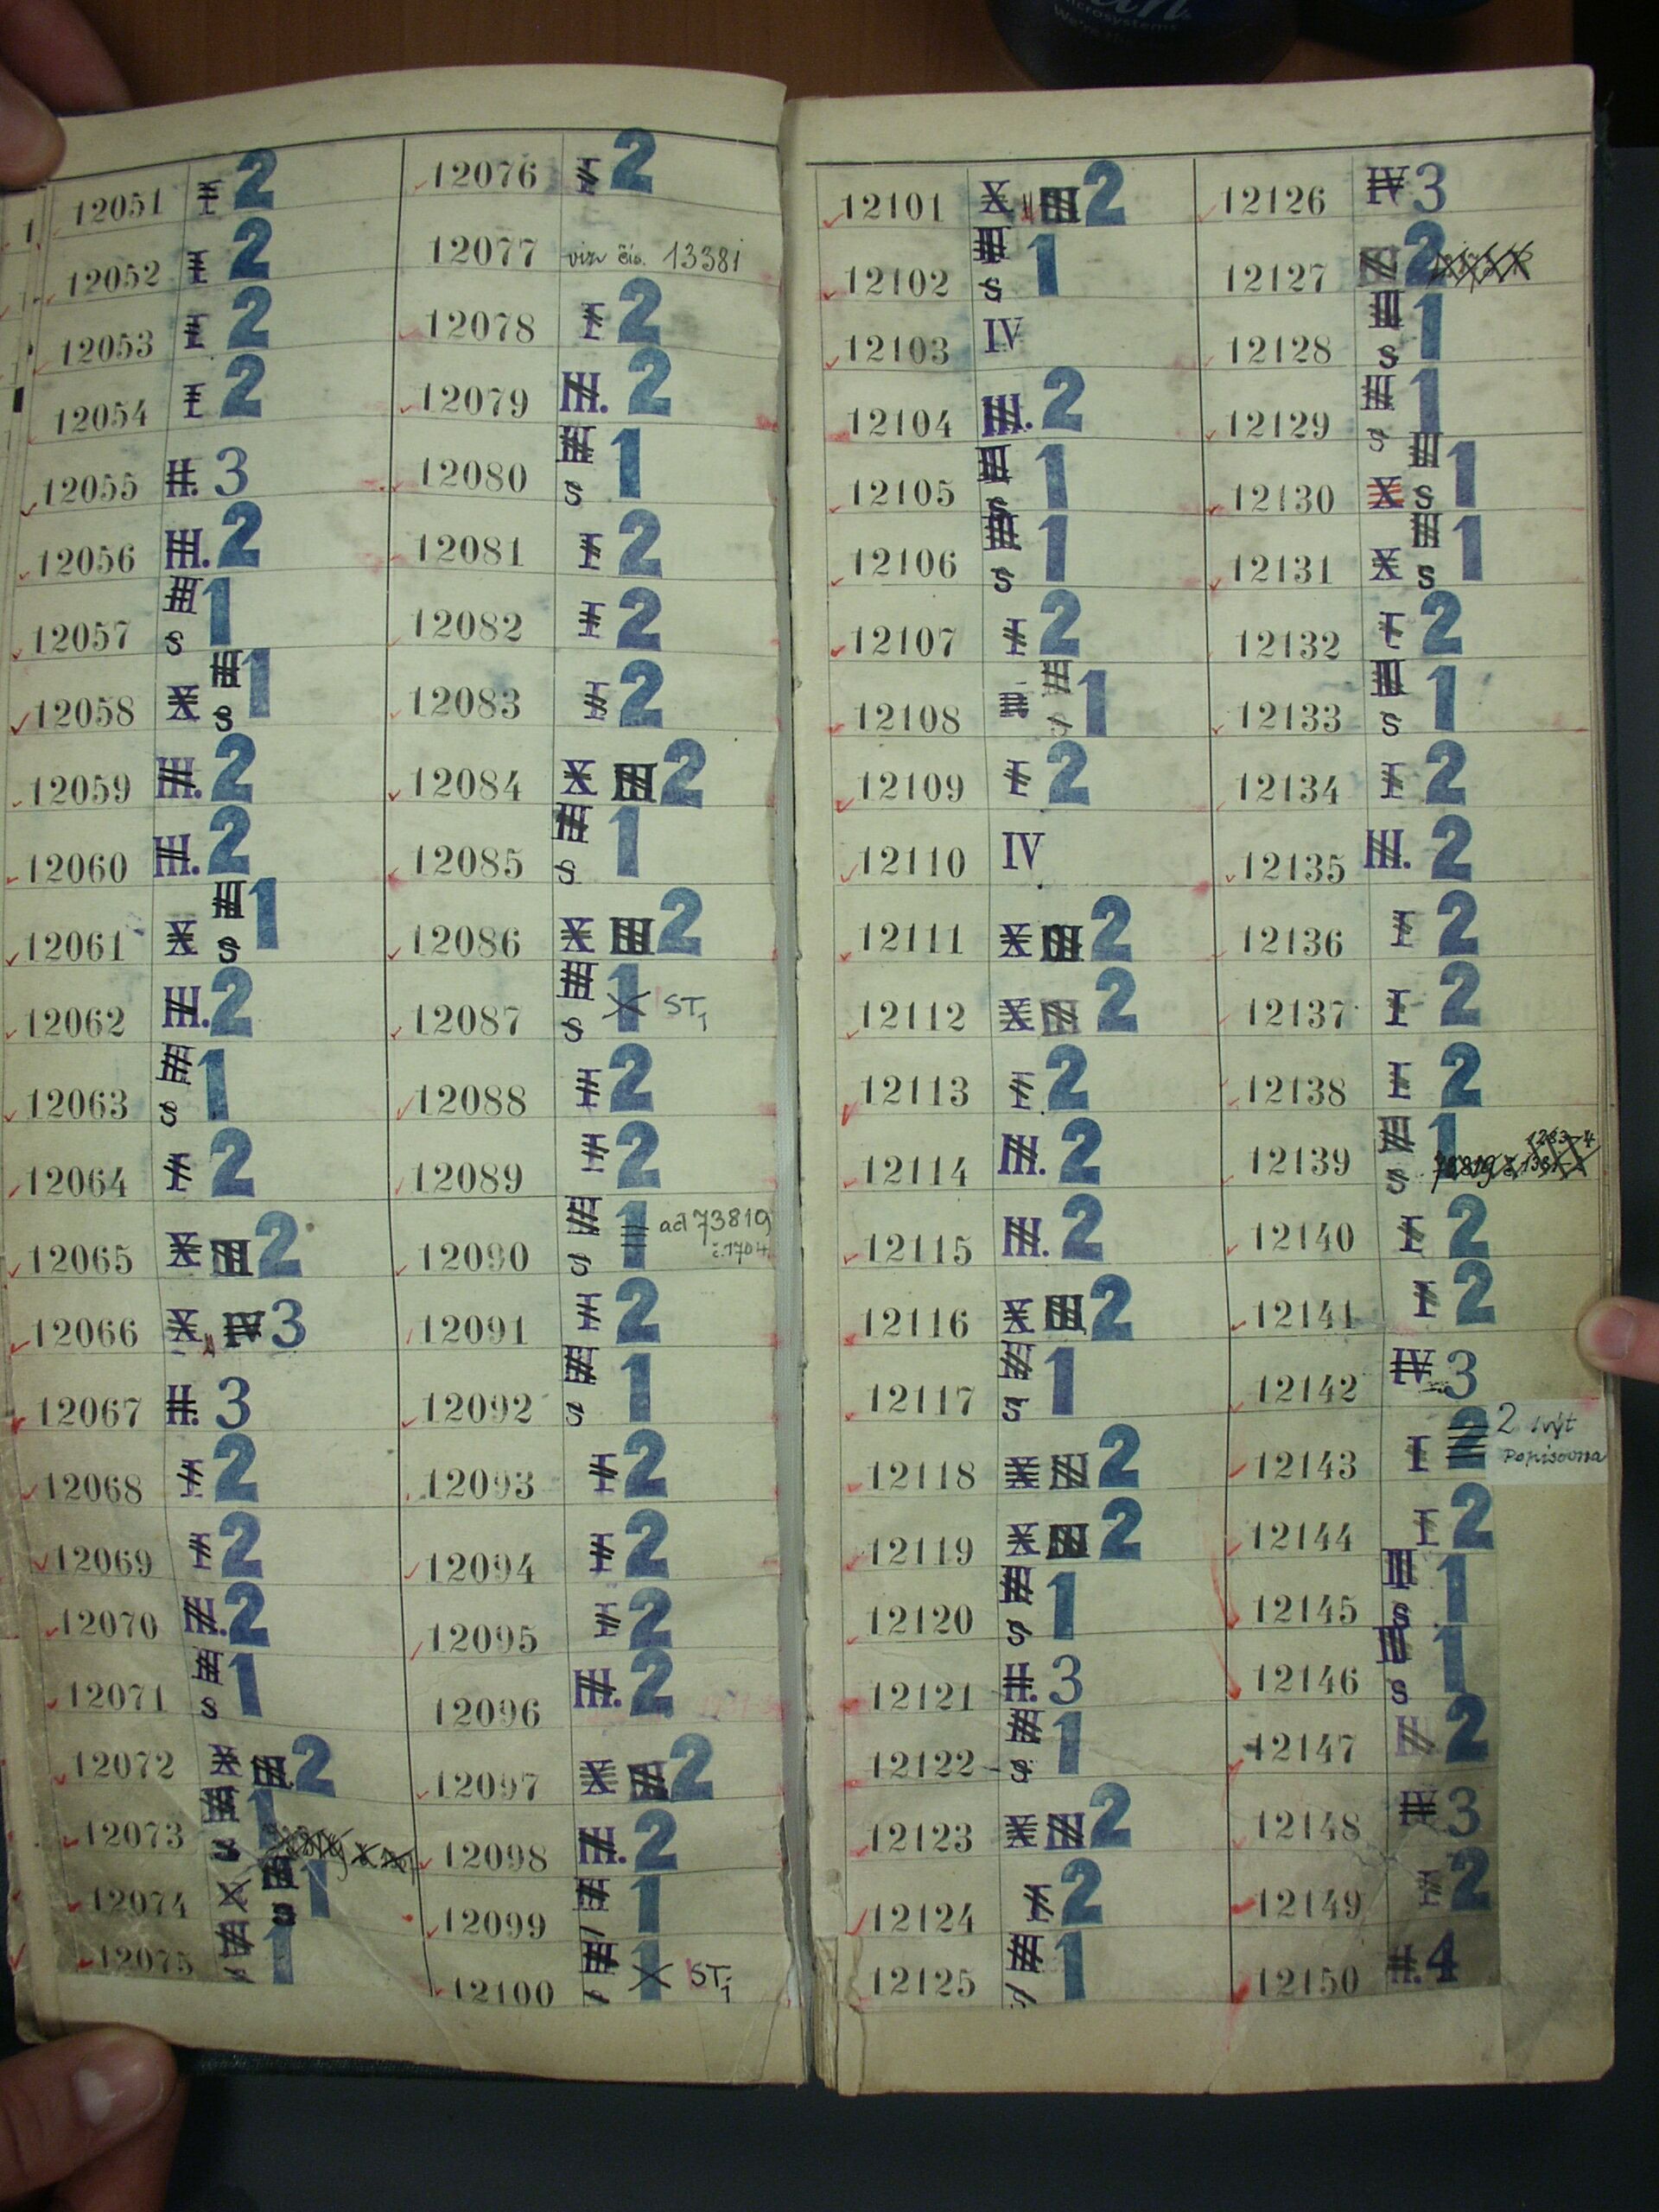 crosystems
12051 I 2
12052 I 2
12053 I 2
12054 I 2
12055 II. 3
12056 III. 2
12057 III S 1
12058 X III S 1
12059 III. 2
12060 III. 2
12061 X III S 1
12062 III. 2
12063 III S 1
12064 I 2
12065 X III 2
12066 X IV 3
12067 II. 3
12068 I 2
12069 I 2
12070 III. 2
12071 III S 1
12072 X III 2
12073 III S 1
12074 X III S 1
12075 III 1
12076 I 2
12077 viz čís. 13381
12078 I 2
12079 III. 2
12080 III S 1
12081 I 2
12082 I 2
12083 I 2
12084 X III 2
12085 III S 1
12086 X III 2
12087 III S 1 ST1
12088 I 2
12089 I 2
12090 III S 1 ad 73819
č.1704
12091 I 2
12092 III S 1
12093 I 2
12094 I 2
12095 I 2
12096 III. 2
12097 X III 2
12098 III. 2
12099 III 1
12100 III 1 ST1
12101 X III 2
12102 III S 1
12103 IV
12104 III. 2
12105 III S 1
12106 III S 1
12107 I 2
12108 III S 1
12109 I 2
12110 IV
12111 X III 2
12112 X III 2
12113 I 2
12114 III. 2
12115 III. 2
12116 X III 2
12117 III S 1
12118 X III 2
12119 X III 2
12120 III S 1
12121 II. 3
12122 III S 1
12123 X III 2
12124 I 2
12125 III 1
12126 IV 3
12127 2
12128 III S 1
12129 III S 1
12130 X III S 1
12131 X III S 1
12132 I 2
12133 III S 1
12134 I 2
12135 III. 2
12136 I 2
12137 I 2
12138 I 2
12139 III S 1
12140 I 2
12141 I 2
12142 IV 3
12143 I 2 2 výt
Popisovna
12144 I 2
12145 III S 1
12146 III S 1
12147 III 2
12148 IV 3
12149 I 2
12150 II. 4